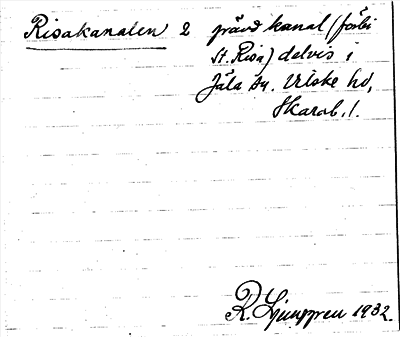 Risakanalen 2 grävd kanal (förbi
St. Risa) delvis i
Jäla sn. Vilske hd,
Skarab. l.
R. Ljunggren 1932.